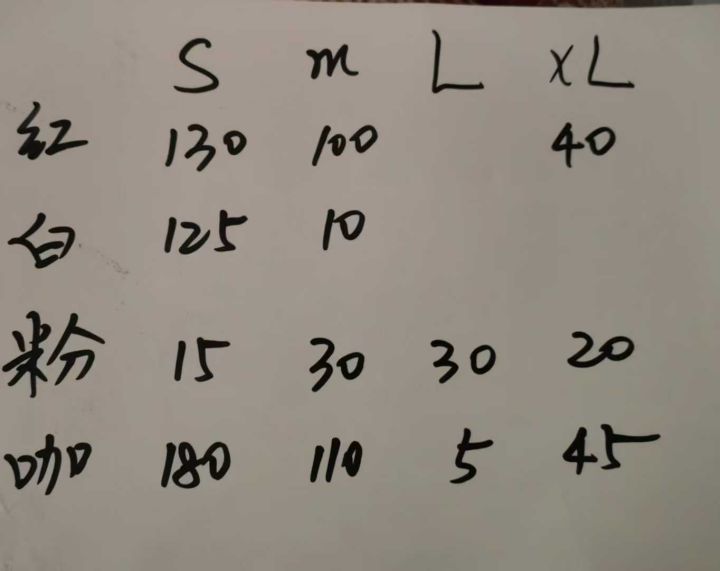 S m L XL
红 130 100 40
白 125 10
粉 15 30 30 20
咖 180 110 5 45